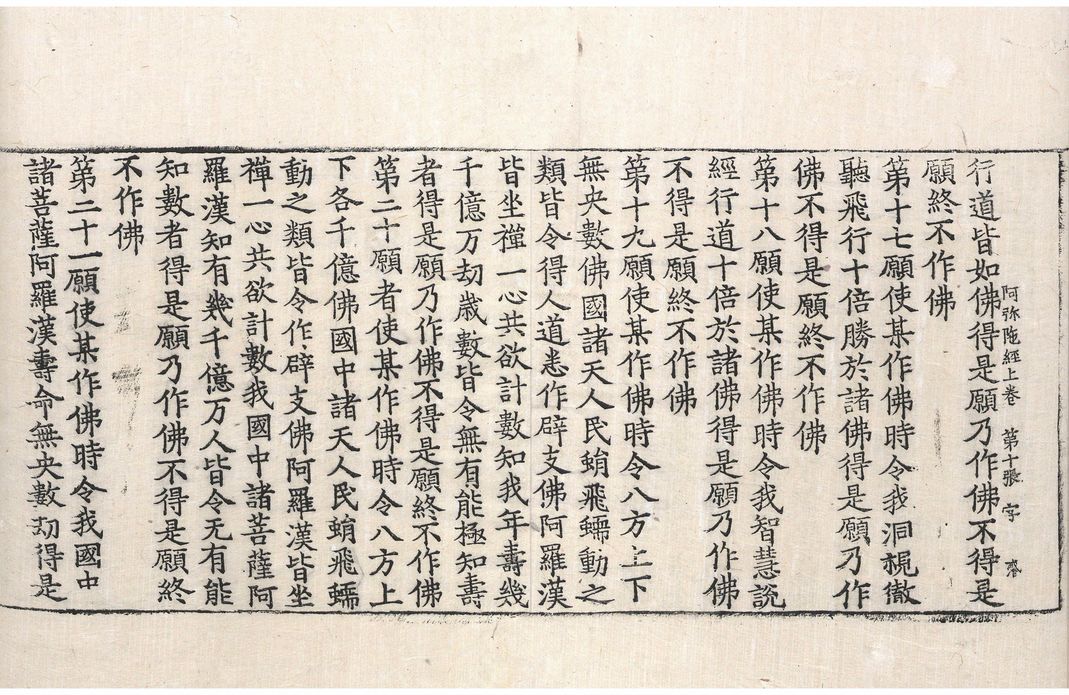 阿弥陁經上卷 第十張 字
行道皆如佛得是願乃作佛不得是
願終不作佛
第十七願使某作佛時令我洞視徹
聽飛行十倍勝於諸佛得是願乃作
佛不得是願終不作佛
第十八願使某作佛時令我智慧說
經行道十倍於諸佛得是願乃作佛
不得是願終不作佛
第十九願使某作佛時令八方上下
無央數佛國諸天人民蜎飛蠕動之
類皆令得人道悉作辟支佛阿羅漢
皆坐禪一心共欲計數知我年壽幾
千億万劫歲數皆令無有能極知壽
者得是願乃作佛不得是願終不作佛
第二十願者使某作佛時令八方上
下各千億佛國中諸天人民蜎飛蠕
動之類皆令作辟支佛阿羅漢皆坐
禪一心共欲計數我國中諸菩薩阿
羅漢知有幾千億万人皆令无有能
知數者得是願乃作佛不得是願終
不作佛
第二十一願使某作佛時令我國中
諸菩薩阿羅漢壽命無央數劫得是